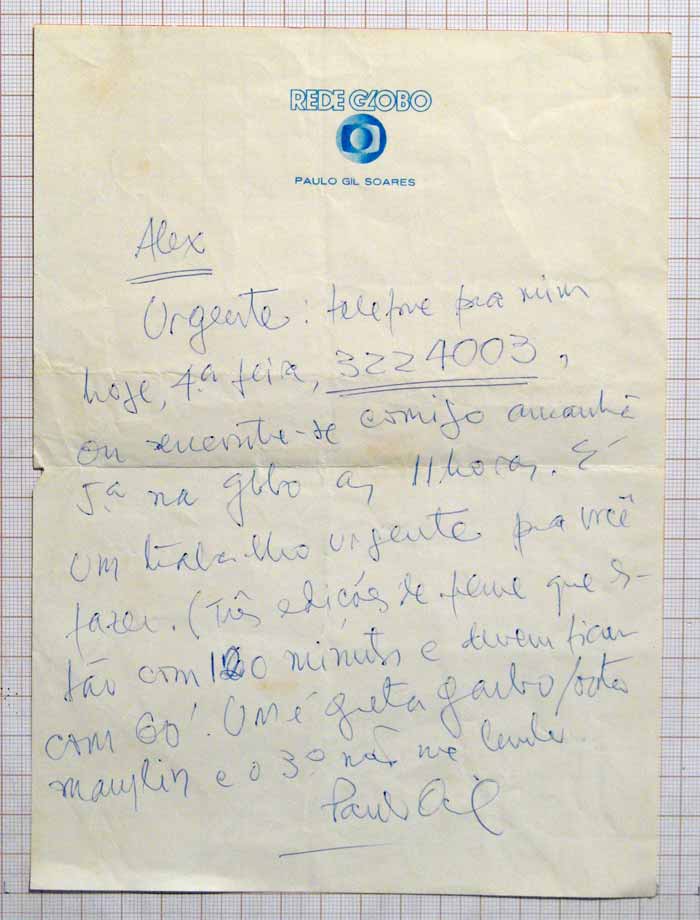 REDE GLOBO
PAULO GIL SOARES
Alex
Urgente: telefone pra mim
hoje, 4.ª feira, 3224003,
ou encontre-se comigo amanhã
5ª na globo as 11 horas. É
um trabalho urgente pra você
fazer. (Três edições de filme que es-
tão com 120 minutos e devem ficar
com 60'. Um é greta garbo/outro
marylin e o 3º não me lembro.
Paulo Gil